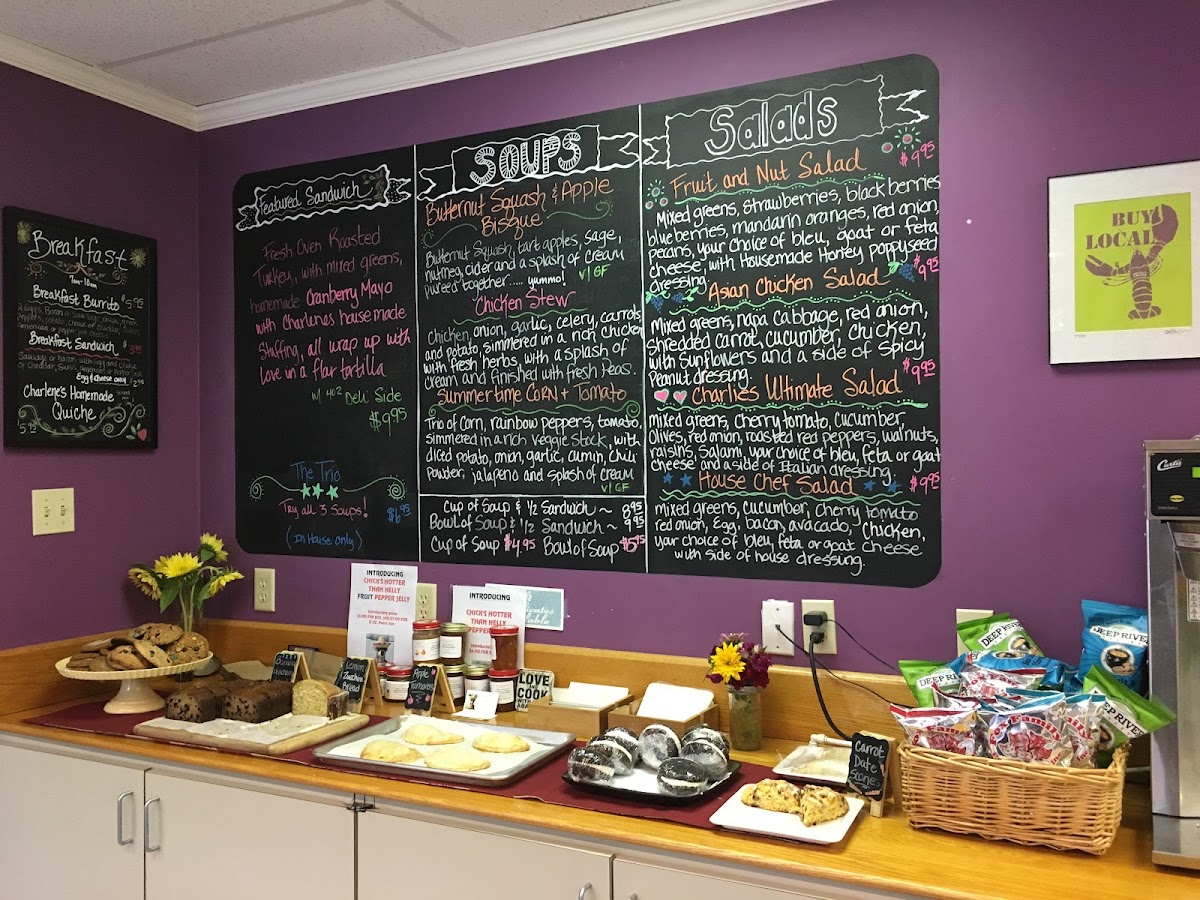 Breakfast
7am-10am
Breakfast Burrito $5.95
Breakfast Sandwich
$
Egg & Cheese only $2.95
Charlene's Homemade
Quiche
Featured Sandwich
Fresh Oven Roasted
Turkey, with mixed greens,
homemade Cranberry Mayo
with Charlenes housemade
Stuffing, all wrap up with
love in a flar tortilla
w/ 4oz Deli Side
$9.95
The Trio
Try all 3 Soups! $6.95
(In House only)
SOUPS
Butternut Squash & Apple
Bisque
Butternut Squash, tart apples, sage,
nutmeg, cider and a splash of cream
pureed together.... yummo! V/GF
Chicken Stew
Chicken, onion, garlic, celery, carrots
and potato, simmered in a rich chicken
with fresh herbs, with a splash of
cream and finished with fresh Peas.
Summertime Corn & Tomato
Trio of Corn, rainbow peppers, tomato,
simmered in a rich veggie stock, with
diced potato, onion, garlic, cumin, chili
Powder, jalapeno and splash of cream
V/GF
Cup of Soup & 1/2 Sandwich ~ 8.95
Bowl of Soup & 1/2 Sandwich ~ 9.95
Cup of Soup $4.95 Bowl of Soup $5.95
Salads
Fruit and Nut Salad $9.95
Mixed greens, strawberries, blackberries
blueberries, mandarin oranges, red onion,
pecans, your choice of bleu, goat or feta
cheese, with Housemade Honey Poppyseed
dressing
Asian Chicken Salad $9.95
Mixed greens, napa cabbage, red onion,
shredded carrot, cucumber, chicken,
with Sunflowers and a side of Spicy
Peanut dressing.
Charlies Ultimate Salad $9.95
mixed greens, cherry tomato, cucumber,
Olives, red onion, roasted red peppers, walnuts,
raisins, Salami, your choice of bleu, feta or goat
cheese and a side of Italian dressing.
House Chef Salad $9.95
mixed greens, cucumber, cherry tomato
red onion, Egg, bacon, avocado, Chicken,
your choice of bleu, feta or goat cheese
with side of house dressing.
BUY
LOCAL
INTRODUCING
CHICK'S HOTTER
THAN HELLY
FRUIT PEPPER JELLY
INTRODUCING
CHICK'S HOTTER
THAN HELLY
Lemon
Zucchini
Bread
Apple
Turnovers
LOVE
COOK
Carrot
Date
Scones
DEEP RIVER
DEEP RIVER
DEEP RIVER
Curtis